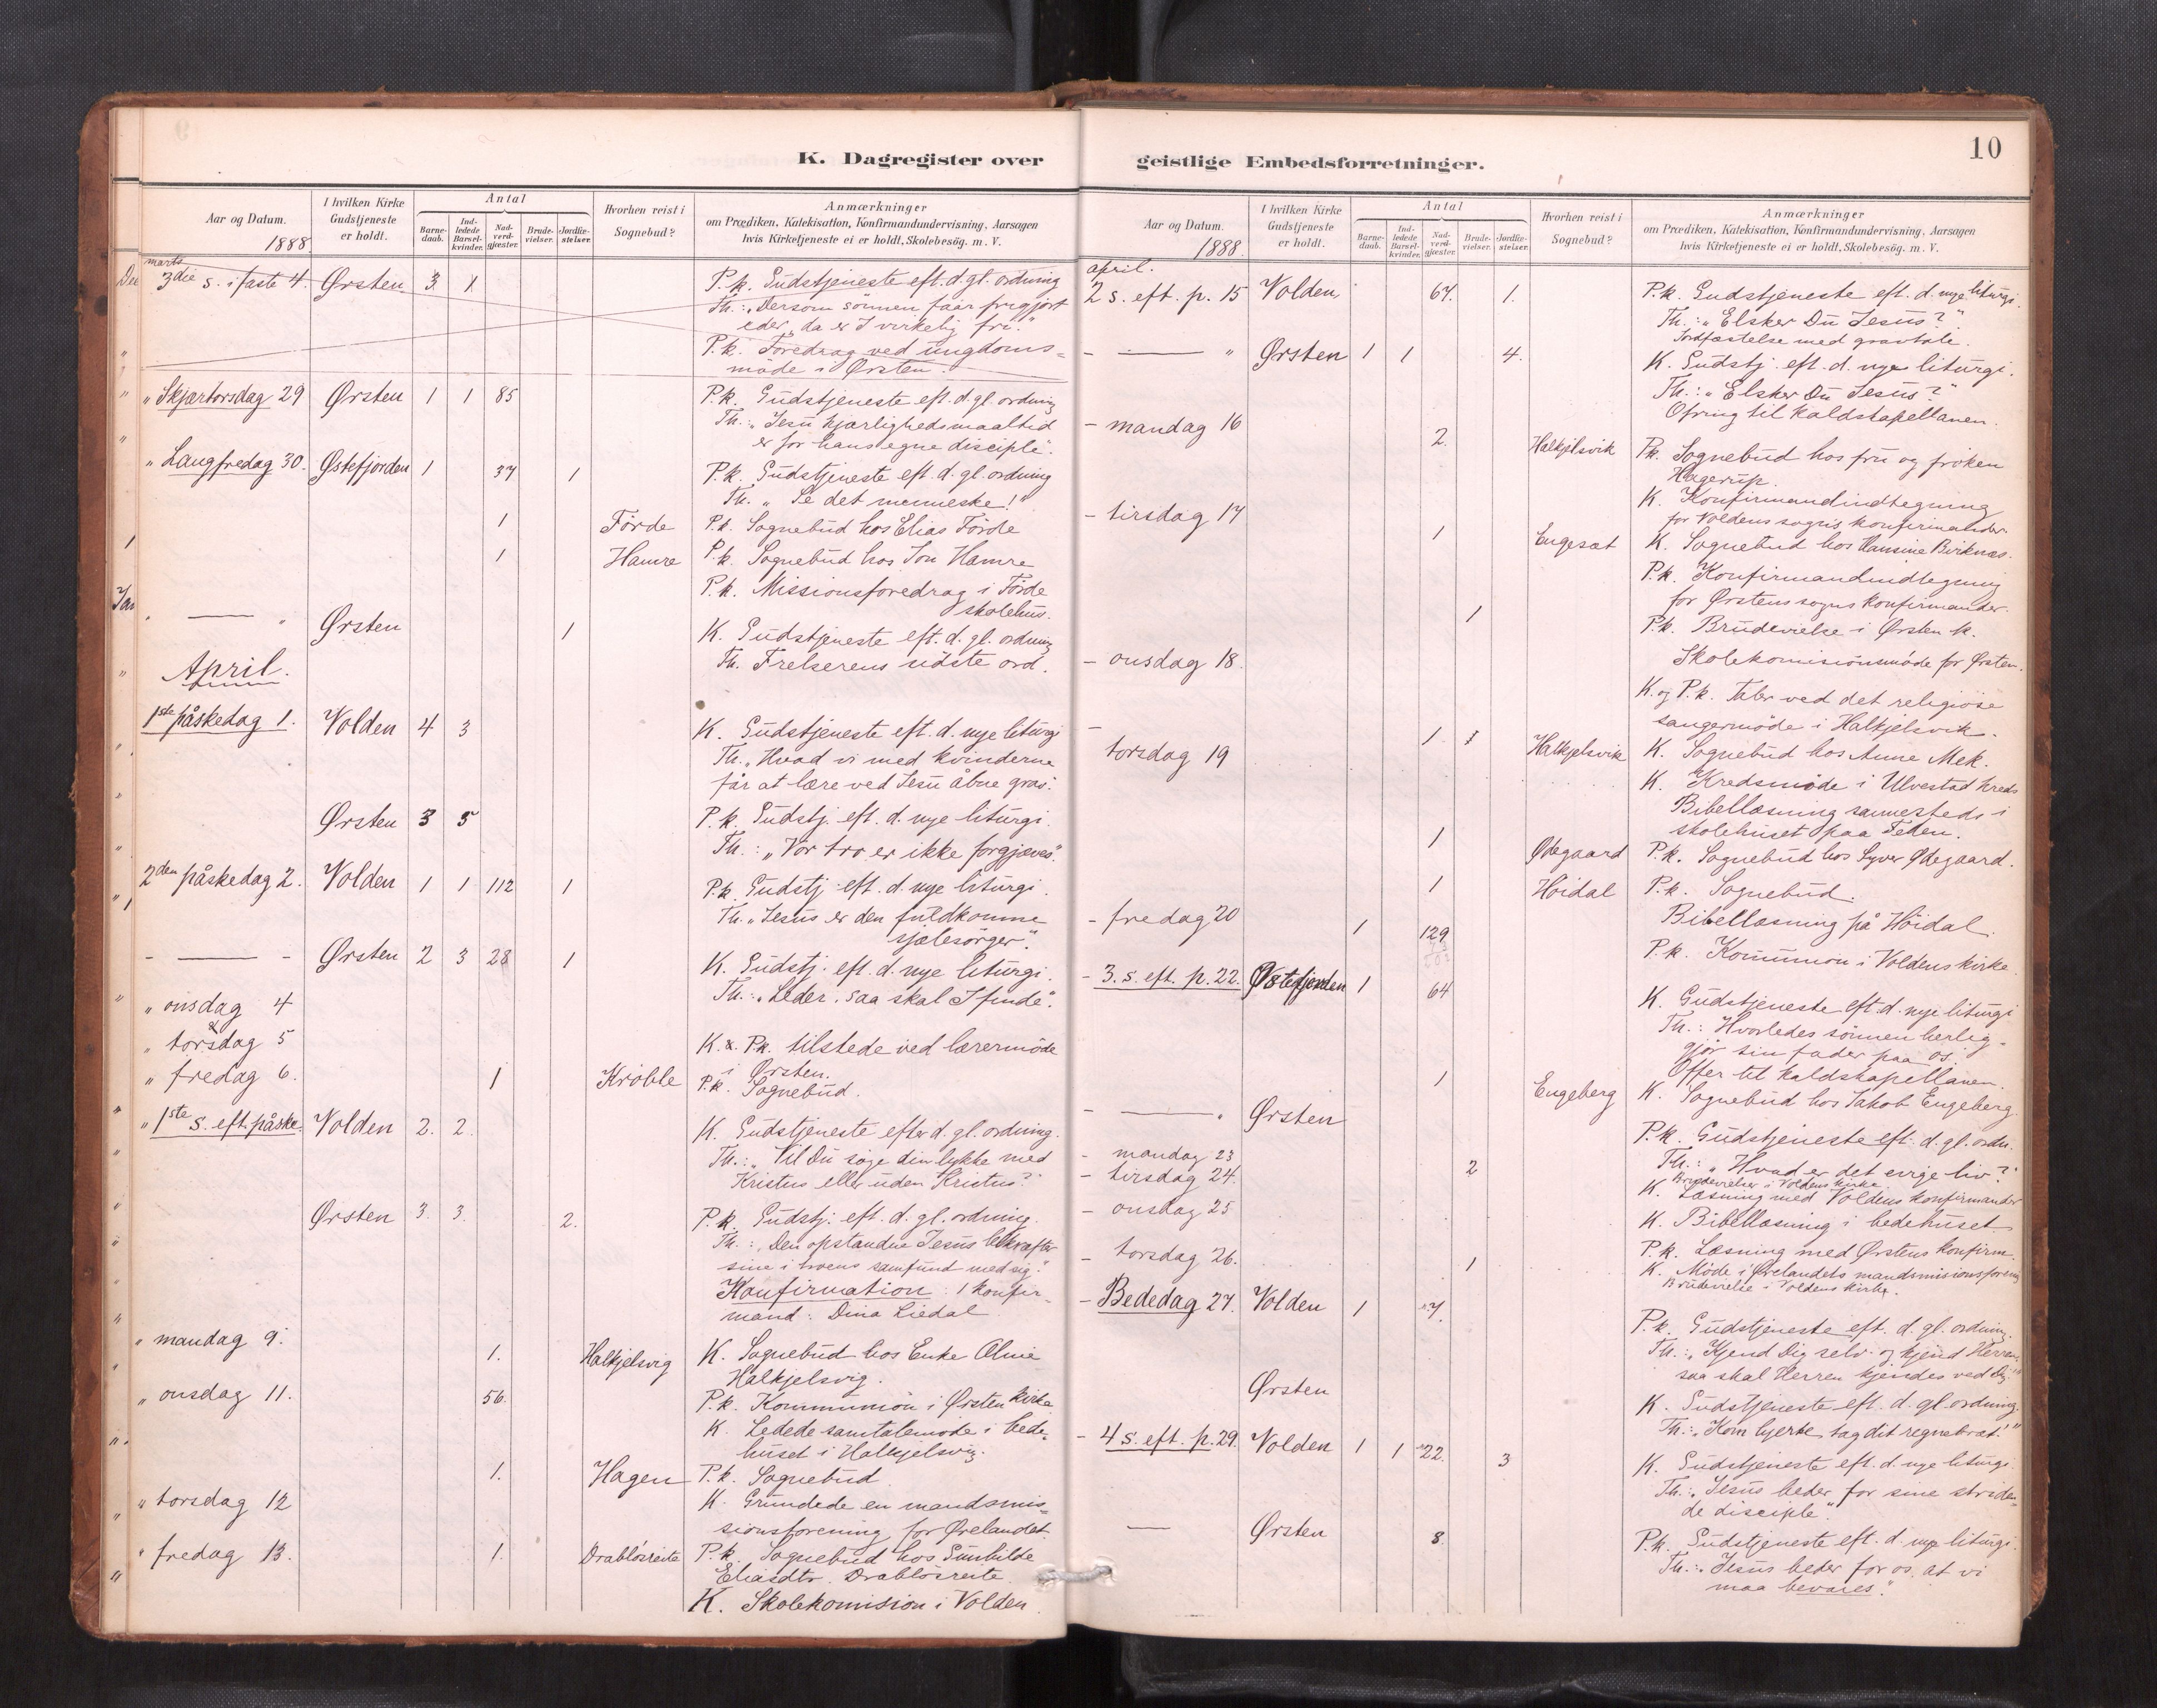 K. Dagregister over
Aar og Datum.
1888
I hvilken Kirke
Gudstjeneste
er holdt.
Antal
Barne-
daab.
Ind-
ledede
Barsel-
kvinder.
Nad-
verd-
gjæster.
Brude-
vielser.
Jordfæ-
stelser.
Hvorhen reist i
Sognebud?
Anmærkninger
om Prædiken, Katekisation, Konfirmandundervisning, Aarsagen
hvis Kirketjeneste ei er holdt, Skolebesøg. m. V.
marts
3die s. i faste 4. Ørsten 3 1 P.k. Gudstjeneste eft. d. gl. ordning
Th.: "Dersom sönnen faar frigjört
eder, da er I virkelig fri."
P.k. Foredrag ved ungdoms-
möde i Ørsten.
" Skjærtorsdag 29 Ørsten 1 1 85 P.k. Gudstjeneste eft. d. gl. ordning
Th.: "Jesu kjærlighedsmaaltid
er for hans egne disciple".
" Langfredag 30. Østefjorden 1 37 1 P.k. Gudstjeneste eft. d. gl. ordning
Th. " Se det menneske!"
1 Förde P.k. Sognebud hos Elias Förde
1 Hamre P.k. Sognebud hos Jon Hamre
P.k. Missionsforedrag i Förde
skolehus.
" — " Ørsten 1 K. Gudstjeneste eft. d. gl. ordning
Th. Frelserens sidste ord.
April.
1ste påskedag 1. Volden 4 3 K. Gudstjeneste eft. d. nye liturgi
Th. "Hvad vi med kvinderne
får at lære ved Jesu åbne grav".
Ørsten 3 5 P.k. Gudstj. eft. d. nye liturgi.
Th.: "Vor tro er ikke forgjæves".
2den påskedag 2. Volden 1 1 112 1 P.k. Gudstj. eft. d. nye liturgi.
Th. "Jesus er den fuldkomne
sjælesörger".
- — - Ørsten 2 3 28 1 K. Gudstj. eft. d. nye liturgi.
Th.: "Leder, saa skal I finde".
" onsdag 4
&
" torsdag 5 K. & P.k. tilstede ved lærermöde
i Ørsten.
" fredag 6. 1 Kröble P.k. Sognebud.
" 1ste s. eft. påske. Volden 2. 2. K. Gudstjeneste efter d. gl. ordning.
Th.: "Vil Du söge din lykke med
Kristus eller uden Kristus?"
Ørsten 3. 3. 2. P.k. Gudstj. eft. d. gl. ordning.
Th.: "Den opstandne Jesus bekræfter
sine i troens samfund med sig."
Konfirmation: 1 konfir-
mand: Dina Liedal
" mandag 9. 1. Halkjelsvig K. Sognebud hos Enke Olnie
Halkjelsvig.
" onsdag 11. 56. P.k. Kommunion i Ørsten kirke
K. Ledede samtalemöde i bede-
huset i Halkjelsvig.
1. Hagen P.k. Sognebud
" torsdag 12 K. Grundede en mandsmis-
sionsforening for Ørelandet.
" fredag 13. 1. Drablösreite P.k. Sognebud hos Gunhilde
Eliasdtr. Drablösreite.
K. Skolekomision i Volden.
geistlige Embedsforretninger.
10
Aar og Datum.
1888.
I hvilken Kirke
Gudstjeneste
er holdt.
Antal
Barne-
daab.
Ind-
ledede
Barsel-
kvinder.
Nad-
verd-
gjæster.
Brude-
vielser.
Jordfæ-
stelser.
Hvorhen reist i
Sognebud?
Anmærkninger
om Prædiken, Katekisation, Konfirmandundervisning, Aarsagen
hvis Kirketjeneste ei er holdt, Skolebesøg. m. V.
april.
2 s. eft. p. 15 Volden 67. 1. P.k. Gudstjeneste eft. d. nye liturgi.
Th.: "Elsker Du Jesus?"
Jordfæstelse med gravtale.
- — " Ørsten 1 1 4. K. Gudstj. eft. d. nye liturgi.
Th.: "Elsker Du Jesus?"
Ofring til kaldskapellanen.
- mandag 16 2. Halkjelsvik P.k. Sognebud hos fru og fröken
Hagerup.
K. Konfirmandindtegning
for Voldens sogns konfirmander.
- tirsdag 17 1 Engeset K. Sognebud hos Hansine Birknæs.
P.k. Konfirmandindtegning
for Ørstens sogns konfirmander.
1 P.k. Brudevielse i Ørsten k.
- onsdag 18. Skolekomisionsmöde for Ørsten.
K. og P.k. Taler ved det religiöse
sangermöde i Halkjelsvik.
- torsdag 19 1 1 Halkjelsvik K. Sognebud hos Anne Mek.
K. Kredsmöde i Ulvestad kreds
Bibellæsning sammesteds i
skolehuset paa Feden.
1 Ødegaard P.k. Sognebud hos Syver Ødegaard.
1 Höidal P.k. Sognebud.
Bibellæsning på Höidal.
- fredag 20 1 129 P.k. Kommunion i Voldens kirke.
- 3. s. eft. p. 22. Østefjorden 1 64 K. Gudstjeneste eft. d. nye liturgi
Th.: Hvorledes sönnen herlig-
gjör sin fader paa os.
Offer til kaldskapellanen.
1 Engeberg K. Sognebud hos Jakob Engeberg.
- — " Ørsten P.k. Gudstjeneste eft. d. gl. ordn.
Th.: "Hvad er det evige liv?"
- mandag 23 2 Brudevielser i Voldens kirke.
- tirsdag 24. K. Læsning med Voldens konfirmander
- onsdag 25 K. Bibellæsning i bedehuset
P.k. Læsning med Ørstens konfirm.
- torsdag 26. 1 K. Möde i Ørelandets mandsmisionsforening
Brudevielse i Voldens kirke.
- Bededag 27. Volden 1 7. P.k. Gudstjeneste eft. d. gl. ordning.
Th.: "Kjend Dig selv og kjend Herren,
saa skal Herren kjendes ved Dig."
Ørsten K. Gudstjeneste eft. d. gl. ordning.
Th.: "Kom hjerte, tag dit regnebræt!"
- 4 s. eft. p. 29. Volden 1 1 22. 3 K. Gudstjeneste eft. d. nye liturgi.
Th.: "Jesus beder for sine striden-
de disciple".
— Ørsten 8. P.k. Gudstjeneste eft. d. nye liturgi.
Th.: "Jesus beder for os, at vi
maa bevares."